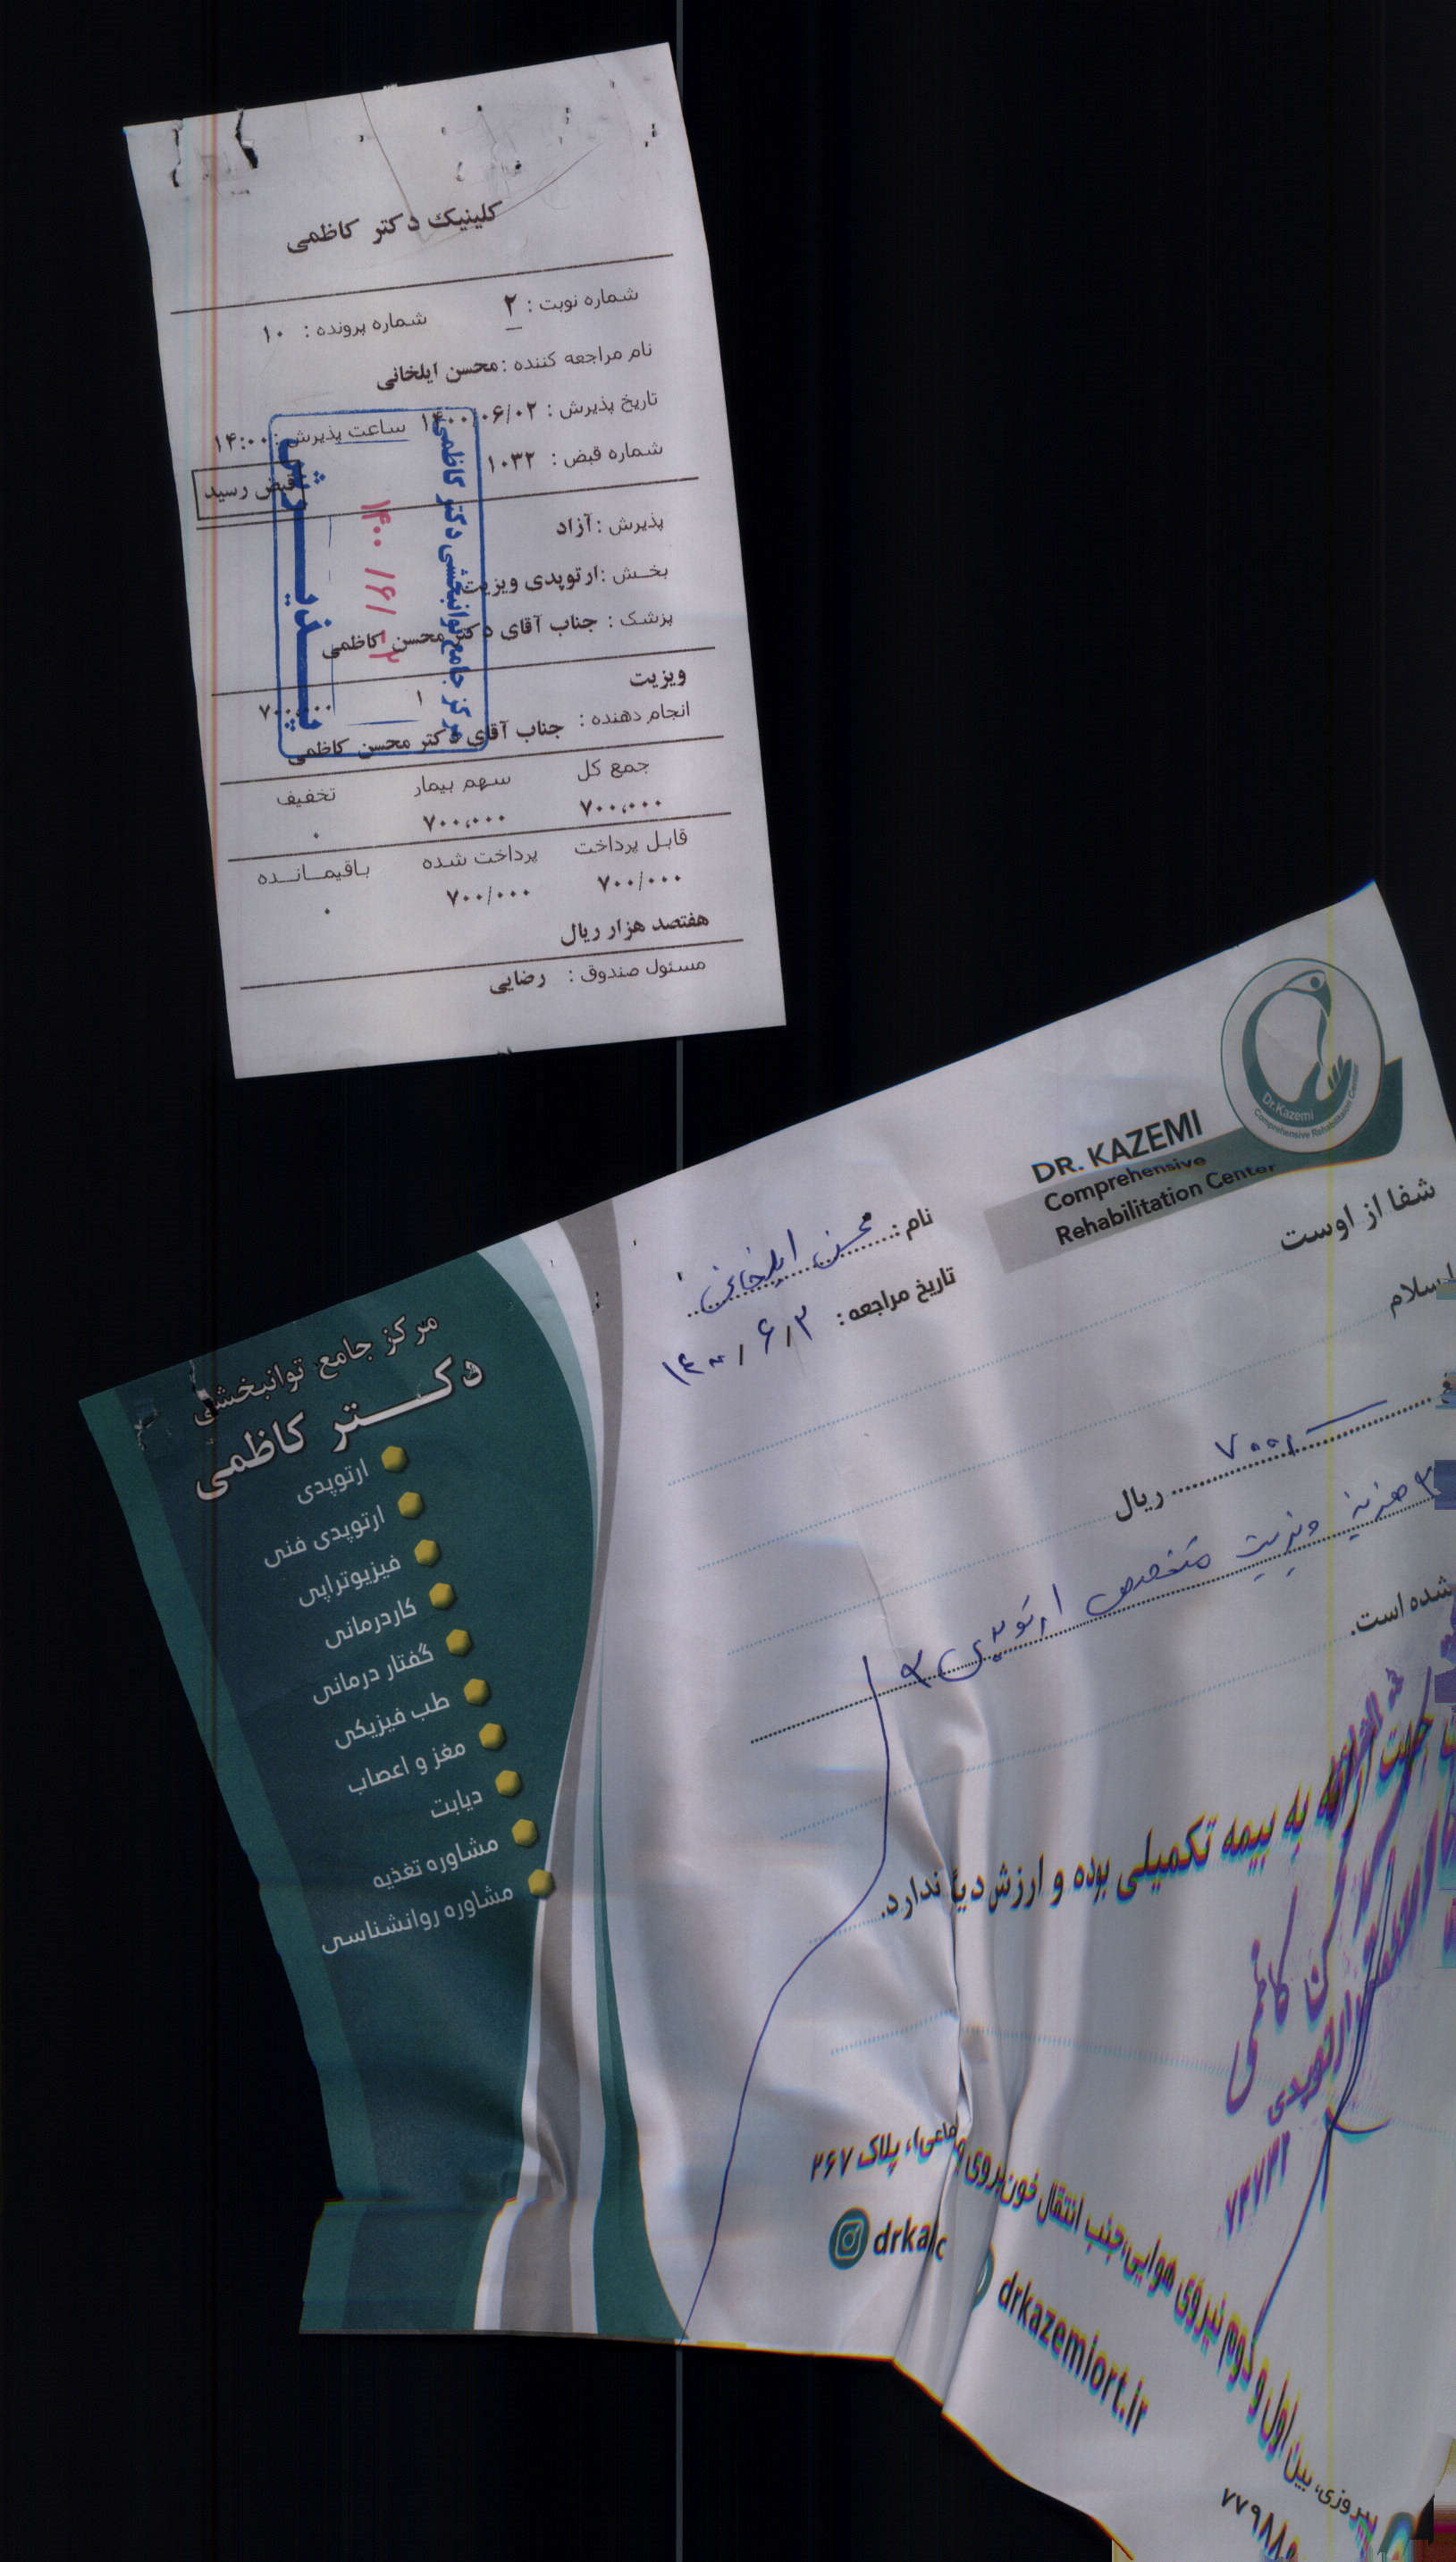 کلینیک دکتر کاظمی
شماره نوبت : ۲ شماره پرونده : ۱۰
نام مراجعه کننده : محسن ایلخانی
تاریخ پذیرش : ۱۴۰۰/۰۶/۰۲ ساعت پذیرش : ۱۴:۰۰
شماره قبض : ۱۰۳۲
قبض رسید
پذیرش : آزاد
بخش : ارتوپدی ویزیت
پزشک : جناب آقای دکتر محسن کاظمی
ویزیت
۱ ۷۰۰,۰۰۰
انجام دهنده : جناب آقای دکتر محسن کاظمی
جمع کل سهم بیمار تخفیف
۷۰۰,۰۰۰ ۷۰۰,۰۰۰ ۰
قابل پرداخت پرداخت شده باقیمانده
۷۰۰/۰۰۰ ۷۰۰/۰۰۰ ۰
هفتصد هزار ریال
مسئول صندوق : رضایی
مرکز جامع توانبخشی دکتر کاظمی
۱۴۰۰/۶/۲
پذیرش
Dr.Kazemi
Comprehensive Rehabilitation Center
DR. KAZEMI
Comprehensive
Rehabilitation Center
شفا از اوست
نام : محسن ایلخانی
تاریخ مراجعه : ۱۴۰۰/۶/۲
سلام
ریال
هزینه ویزیت متخصص ارتوپدی
شده است.
جهت ارائه به بیمه تکمیلی بوده و ارزش دیگر ندارد.
محسن کاظمی
ارتوپدی
مرکز جامع توانبخشی
دکتر کاظمی
ارتوپدی
ارتوپدی فنی
فیزیوتراپی
کاردرمانی
گفتار درمانی
طب فیزیکی
مغز و اعصاب
دیابت
مشاوره تغذیه
مشاوره روانشناسی
پیروزی، بین اول و دوم نیروی هوایی، جنب انتقال خون، پلاک ۲۶۷
drkazemiort.ir